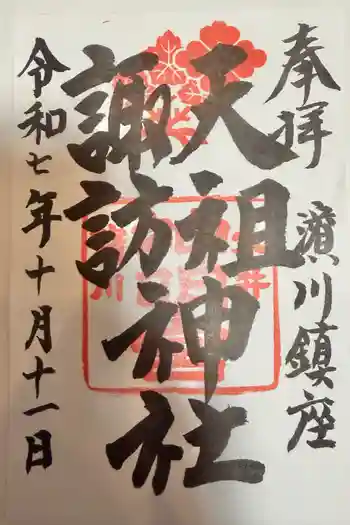 奉拝
濱川鎮座
天祖神社
諏訪
令和七年十月十一日